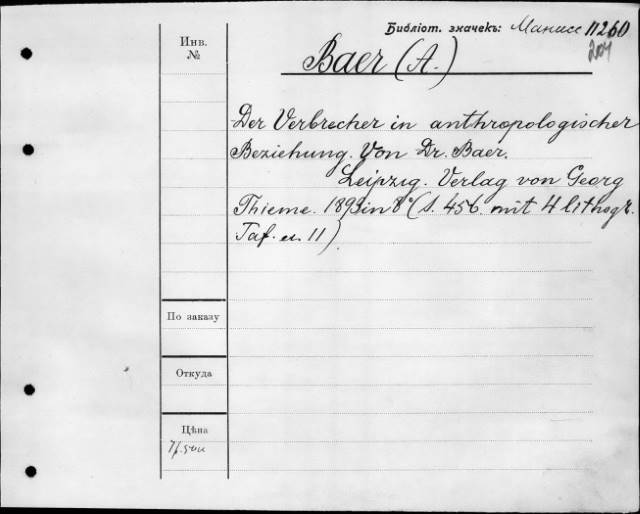 Библіот. значекъ: Манасс 11260
204
Инв.
№
Baer (A.)
Der Verbrecher in anthropologischer
Beziehung. Von Dr. Baer.
Leipzig. Verlag von Georg
Thieme. 1893 in 8° (S. 456. mit 4 lithogr.
Taf. 11)
По заказу
Откуда
Цѣна